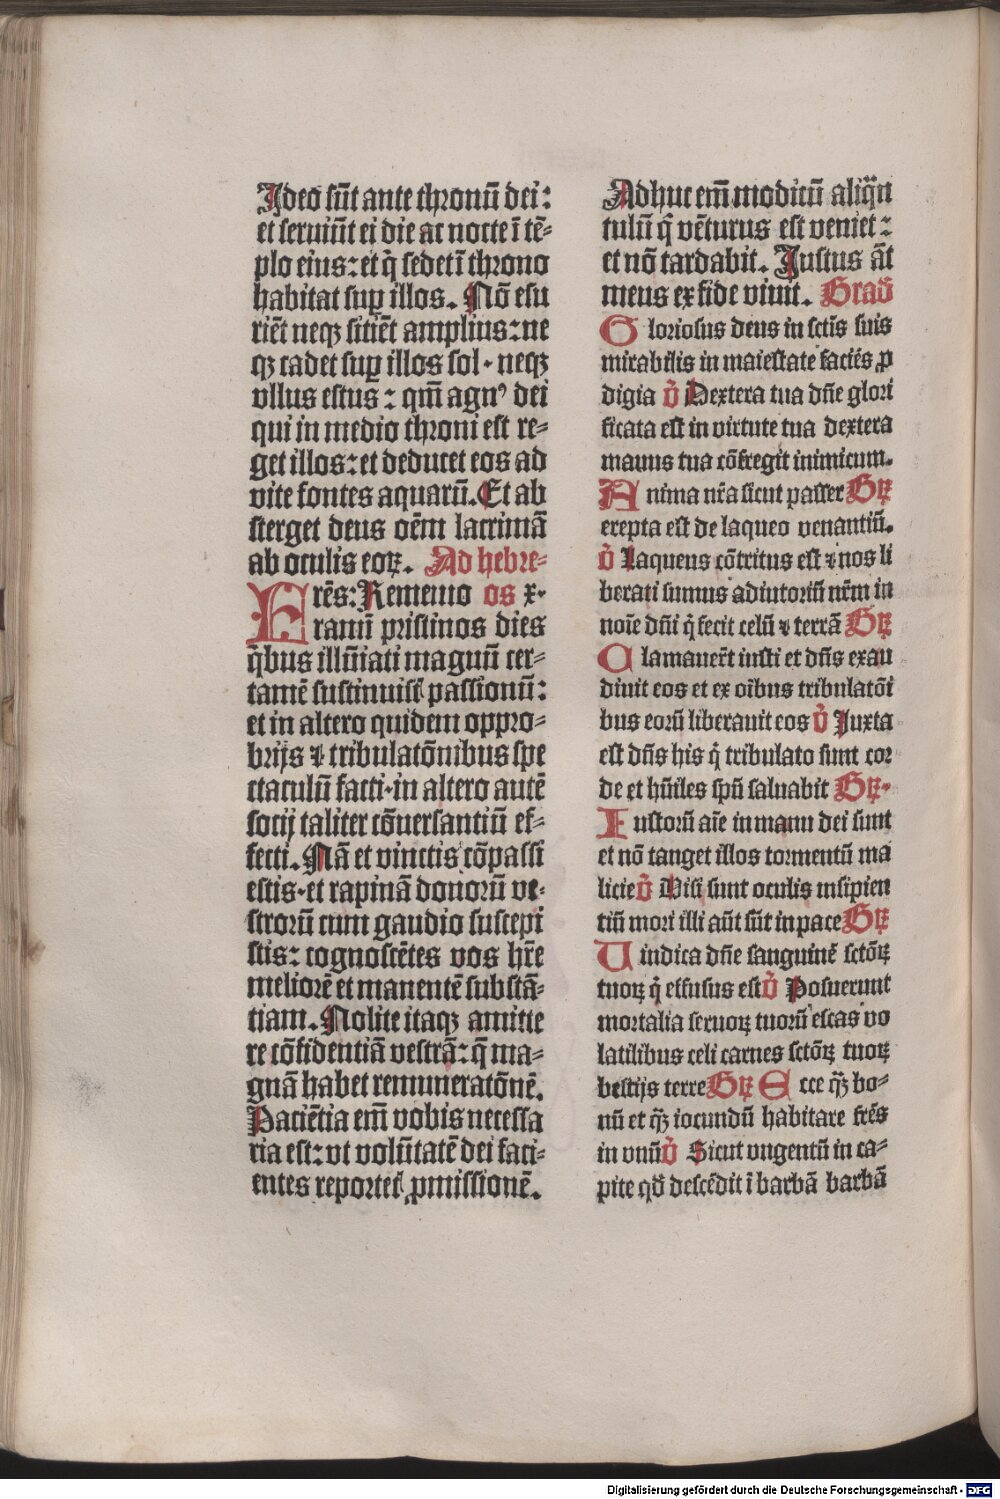 Ideo sūt ante thronū dei:
et seruiūt ei die ac nocte ī tē-
plo eius: et q̄ sedet ī throno
habitat suꝑ illos. Nō esu
riēt neqꝫ sitiēt amplius: ne
qꝫ cadet suꝑ illos sol. neqꝫ
vllus estus: qm̄ agnꝰ dei
qui in medio throni est re-
get illos: et deducet eos ad
vite fontes aquarū. Et ab
sterget deus oēm lacrimā
ab oculis eoꝝ. Ad hebre-
Frēs: Rememo os x.
ramī pristinos dies
q̄bus illūiati magnū cer-
tamē sustinuist͛ passionū:
et in altero quidem oppro-
brijs ⁊ tribulatōnibus spe
ctaculū facti. in altero autē
socij taliter cōuersantiū ef-
fecti. Nā et vinctis cōpassi
estis. et rapinā donorū ve-
strorū cum gaudio suscepi
stis: cognoscētes vos hr̄e
meliorē et manentē substā-
tiam. Nolite itaqꝫ amitte
re cōfidentiā vestrā: q̄ ma-
gnā habet remuneratōnē.
Paciētia em̄ vobis necessa
ria est: vt volūtatē dei faci-
entes reportet͛ ꝓmissionē.
Adhuc em̄ modicū aliq̄n
tulū q̄ vēturus est veniet:
et nō tardabit. Iustus āt
meus ex fide viuit. Grad̄
Gloriosus deus in sctīs suis
mirabilis in maiestate faciēs ꝓ
digia v̊ Dextera tua dn̄e glori
ficata est in virtute tua dextera
manus tua cōfregit inimicum.
Anima nr̄a sicut passer Gꝝ
erepta est de laqueo venantiū.
v̊ Laqueus cōtritus est ⁊ nos li
berati sumus adiutoriū nr̄m in
noīe dn̄i q̄ fecit celū ⁊ terrā Gꝝ
Clamauer̄t iusti et dn̄s exau
diuit eos et ex oībus tribulatōi
bus eorū liberauit eos v̊ Iuxta
est dn̄s his q̄ tribulato sunt cor
de et hūiles spū saluabit Gꝝ.
Iustorū aīe in manu dei sunt
et nō tanget illos tormentū ma
licie v̊ Uisi sunt oculis insipien
tiū mori illi aūt sūt in pace Gꝝ
Uindica dn̄e sanguinē sctōꝝ
tuoꝝ q̄ effusus est v̊ Posuerunt
mortalia seruoꝝ tuorū escas vo
latilibus celi carnes sctōꝝ tuoꝝ
bestijs terre Gꝝ Ecce qꝫ̄ bo-
nū et qꝫ̄ iocundū habitare frēs
in vnū v̊ Sicut vngentū in ca-
pite qd̄ descēdit ī barbā barbā
Digitalisierung gefördert durch die Deutsche Forschungsgemeinschaft - DFG